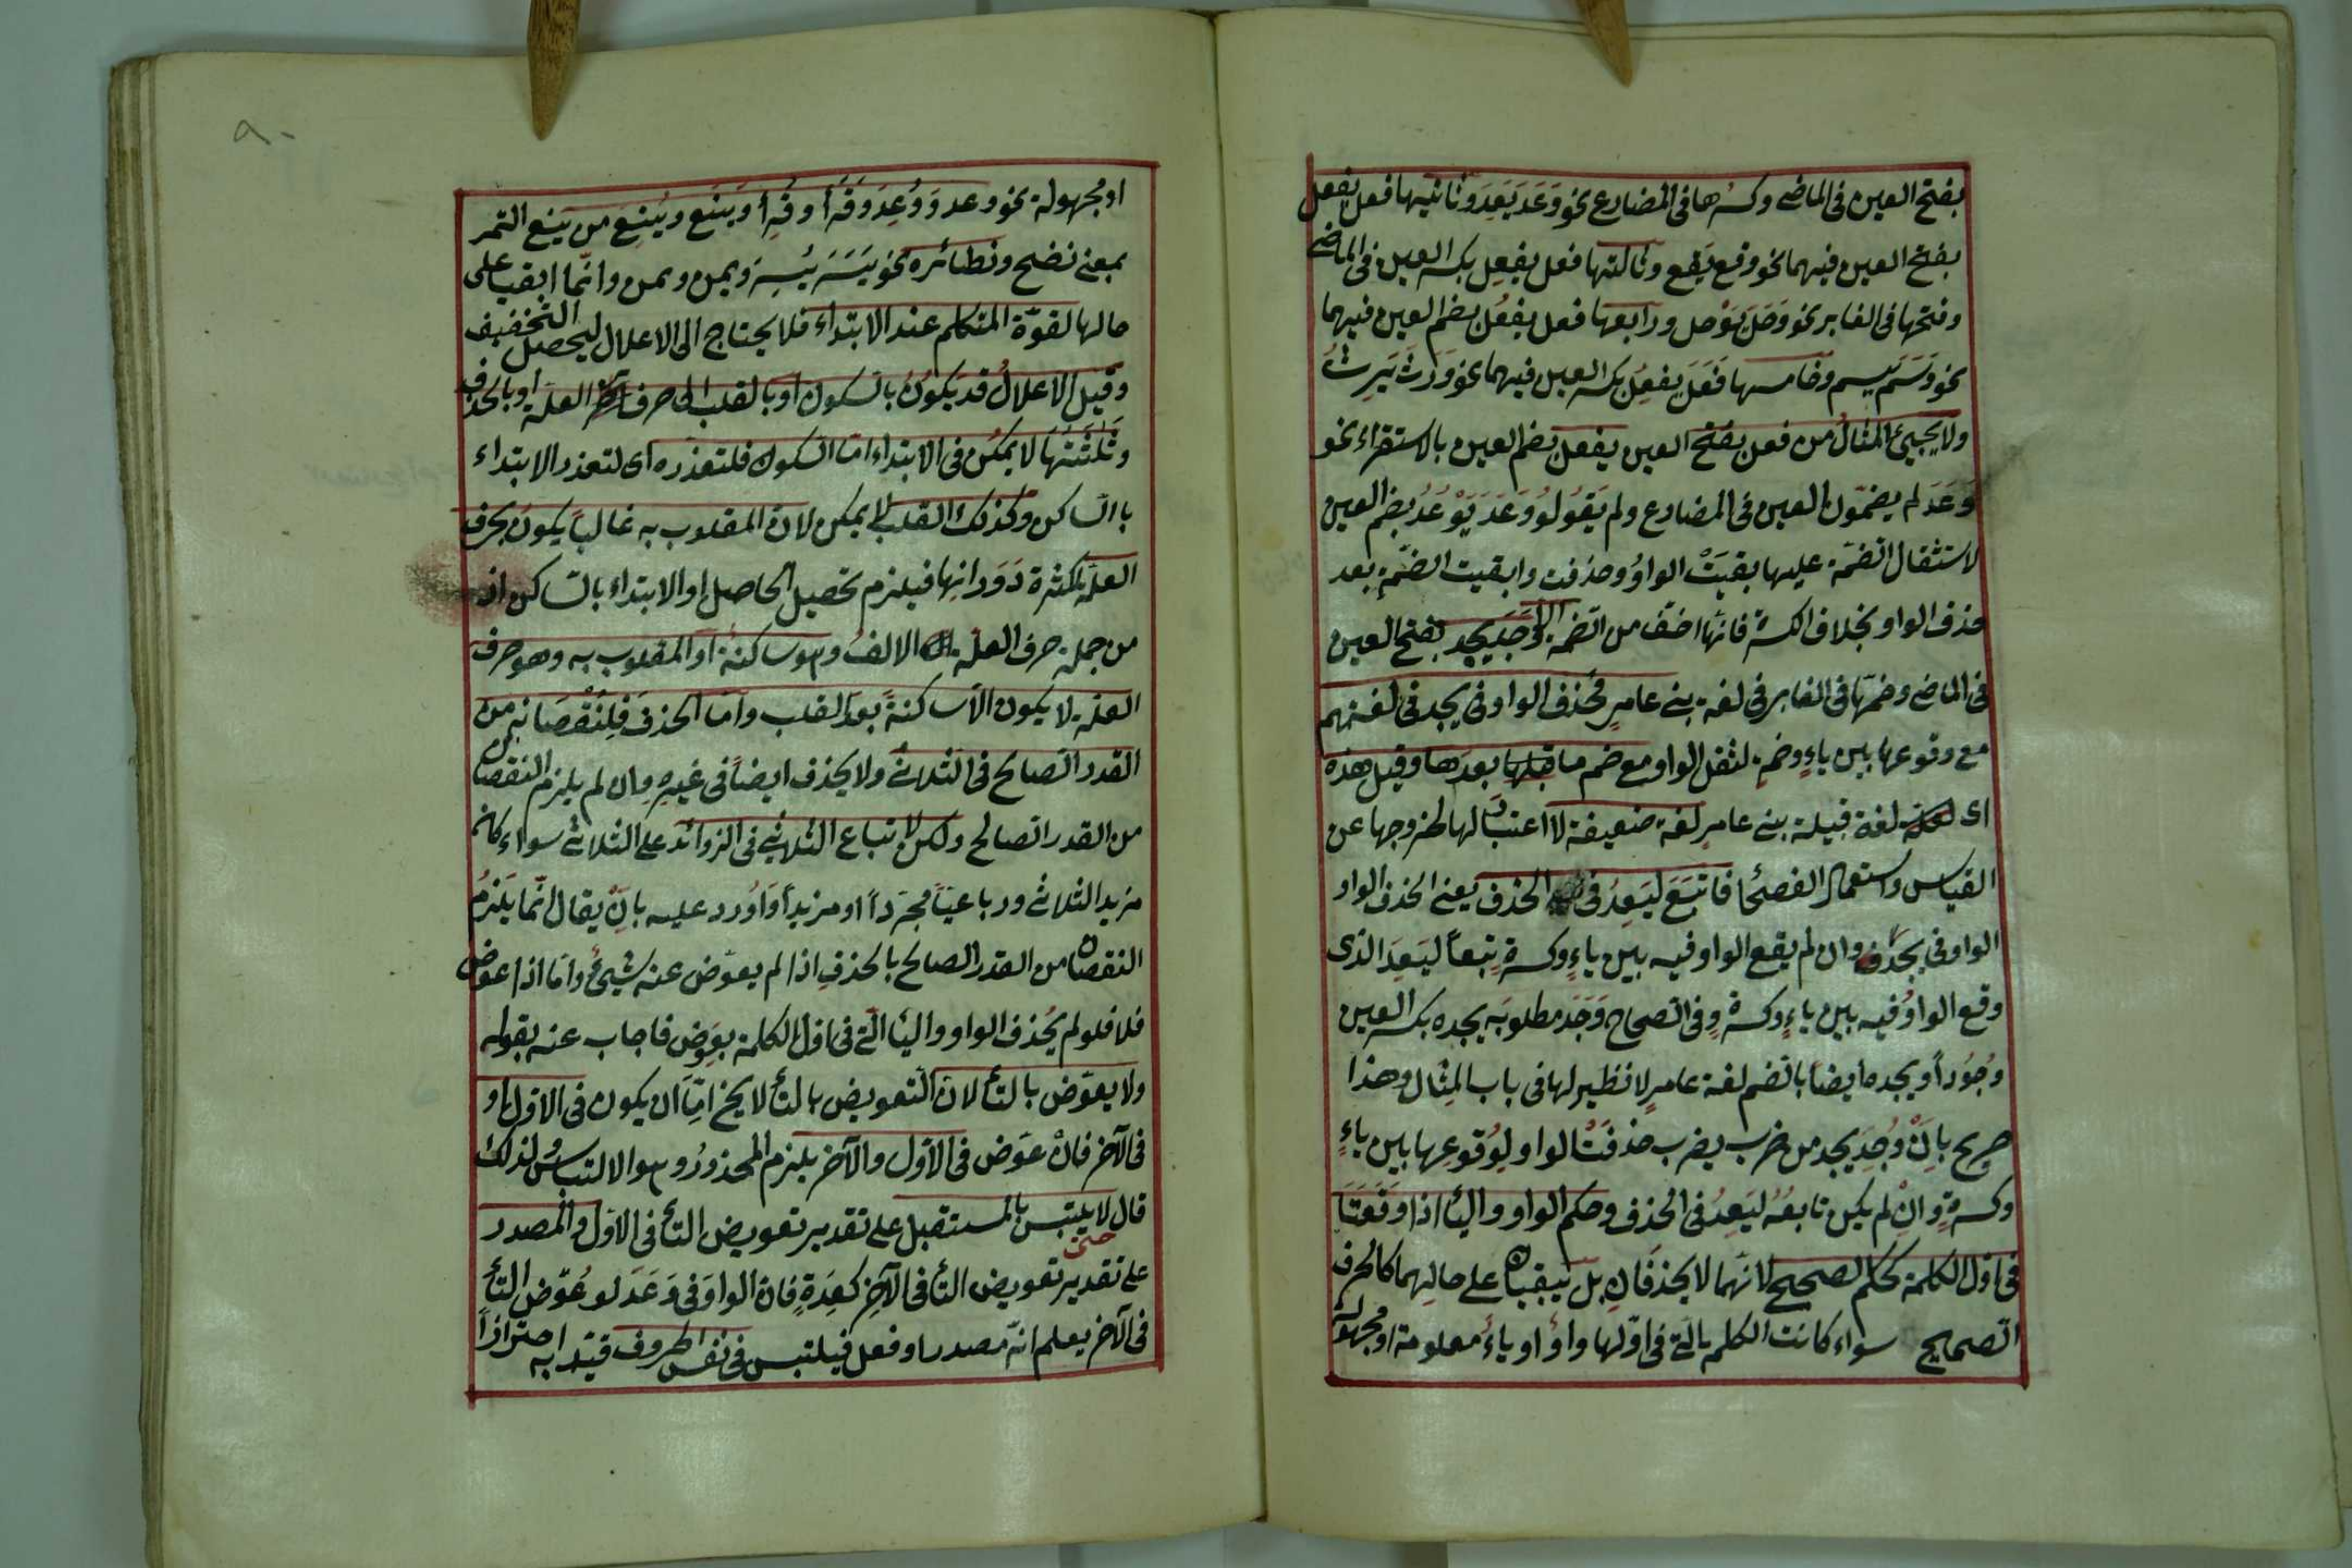 بفتح العين فى الماضى وكسرها فى المضارع نحو وَعَدَ يَعِدُ وثانيها فعل يفعل
بفتح العين فيهما نحو وقع يَقع وثالثها فعل يفعِل بكسر العين فى الماضى
وفتحها فى الغابر نحو وَجَلَ يَوْجل ورابعها فعل يفعُل بضم العين فيهما
نحو وَسَمَ يسم وخامسها فَعَلَ يفعِل بكسر العين فيهما نحو وَرِثَ يَرِثُ
ولا يجيئ المثالُ من فعل بفتح العين يفعل بضم العين بالاستقراء نحو
وَعَدَ لم يضمّون العين فى المضارع ولم يَقولو وَعَدَ يَوْعُدُ بضم العين
لاستثقال الضمّة عليها بقيَتْ الواوُ وحذفت وابقيت الضّمةِ بعد
حذف الواو بخلاف الكسرة فانها اخف من الضمة وَجَدَ يجد بفتح العين
فى الماضى وضمّها فى الغابر فى لغة بنى عامرٍ فحذف الواو فى يجد فى لغتهم
مع وقوعها بين ياءٍ وضمةٍ لثقل الواو مع ضم ما قبلها بعدها وقيل هذه
اى لغة قبيلة بنى عامرٍ لغة ضعيفة لا اعتبار لها لخروجها عن
القياس واستعمال الفصحا فاتبَعَ ليَعِدُ فى الحذف يعنى الحذف الواو
الواو فى يجد وان لم يقع الواو فيه بين ياءٍ وكسرةٍ تبعاً ليَعِدَ الذى
وقع الواوُ فيه بين ياءٍ وكسرةٍ وفى الصحاح وَجَدَ مطلوبَه يجده بكسر العين
وجُوداً ويجده ايضاً بالضم لغة عامرٍ لا نظير لها فى باب المِثال وهذا
صريح بِانَّ وُجِدَ يجد من ضرب يضرب حذفَتْ الواو لِوُقوعِها بين ياءٍ
وكسرةٍ وانْ لم يكن تابعُه ليَعِدُ فى الحذف وحكم الواو والياء اذا وَقَعَتَا
فى اول الكلمة كحكم الصحيح لانهما لا يحذفَانِ بل يبقيان على حالِهما كالحرف
الصحيح سواء كانت الكلمة التى فى اوّلها واوٌ او ياءٌ معلومة او مجهولة
او مجهولة نحو وعد وَوُعِدَ وَقَرَأ وقُرِأ ويَنَع ويُنِعَ من يَنع التمر
بمعنى نضج ونظائره نحو يَسَرَ يُسِرَ ويمن ويمن وانّما ابقيا على
حالها لقوّة المتكلم عند الابتداء فلا يحتاج الى الاعلال ليحصل التخفيف
وقيل الاعلالُ قد يكونُ بالسكون او بالقلب الى حرف العلة او بالحذف
وثلثتُها لا يمكن فى الابتداء امّا السكون فلتعذره اى لتعذر الابتداء
بالساكن وكذلك القلب لا يمكن لان المقلوب به غالباً يكون بحرف
العلة لكثرة دَوَرانِها فيلزم تحصيل الحاصل او الابتداء بالساكن اذ
من جملة حرف العلة الالفُ وهو ساكنة او المقلوب به وهو حرف
العلة لا يكون الا ساكنةً بعد القلب وامّا الحذف فلِنُقْصَانه من
القدر الصالح فى الثلاثى ولا يحذف ايضاً فى غيره وان لم يلزم النقصان
من القدر الصالح ولكن لاتباع الثلاثى فى الزوائد على الثلاثى سواء كان
مزيد الثلاثى ورباعيّاً مجرّداً او مزيداً وَاُورد عليه بِانْ يقال انّما يَلزمُ
النقصان من القدر الصالح بالحذفِ اذا لم يعوّض عنه شيئٌ وامّا اذا عوض
فلا فلو لم يُحذف الواو والياء التى فى اول الكلمة بعِوَضٍ فاجاب عنه بقوله
ولا يعوّض بالتاء لان التعويض بالتاء لا يخ امّا ان يكون فى الاول او
فى الآخر فانْ عوّض فى الاول والآخر يلزم المحذورُ وهو الالتباسُ ولذلك
قال لا يلتبس بالمستقبل على تقدير تعويض التاء فى الاول والمصدر
على تقدير تعويض التاء فى الآخِرِ كعِدَةٍ فان الواوَ فى وَعَدَ لو عُوّض التاء
فى الآخر يعلم انّه مصدر او فعل فيلتبس فى نفس الحروف قيّد به احترازاً